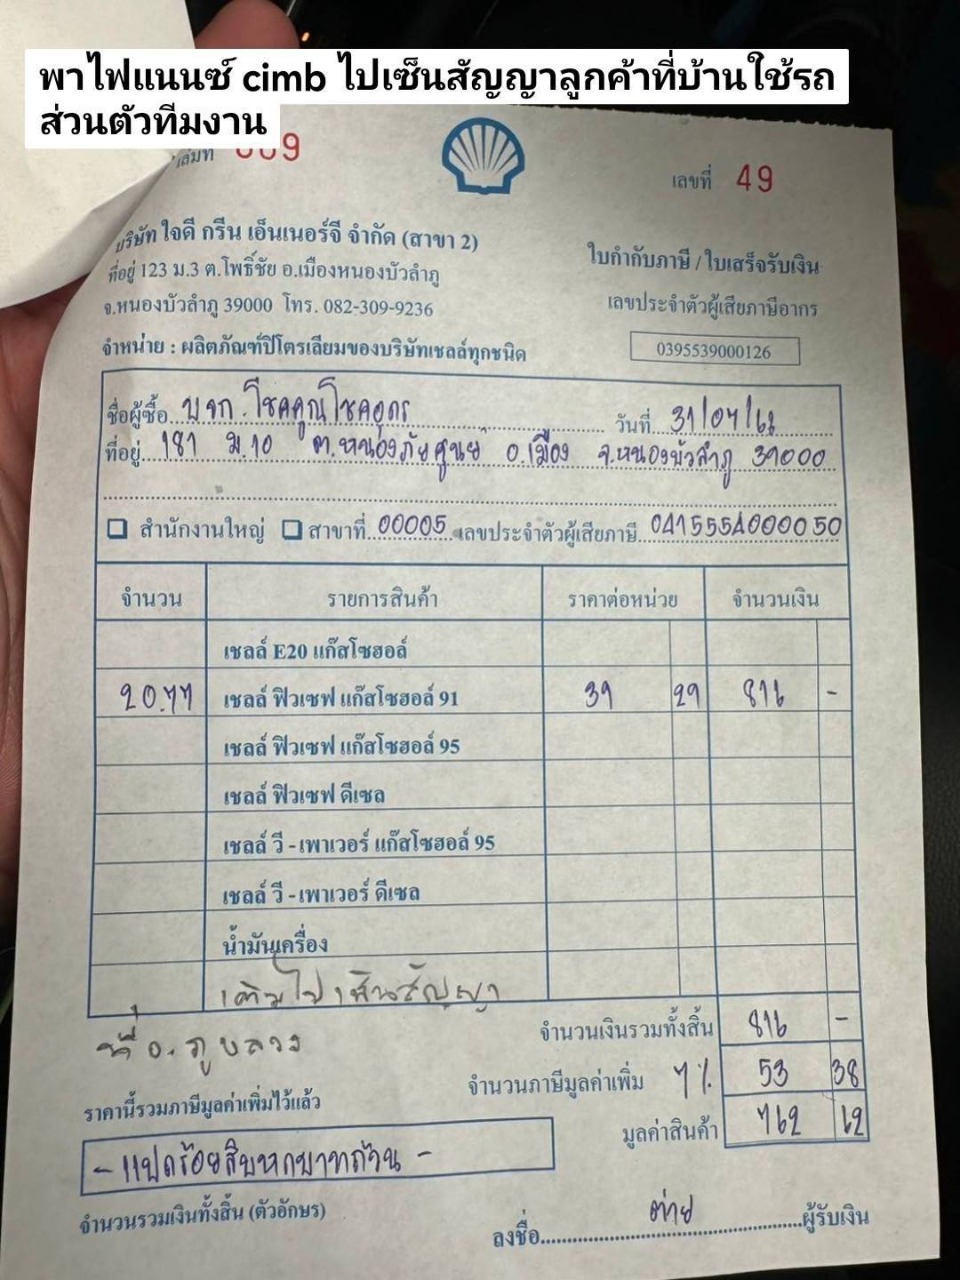 พาไฟแนนซ์ cimb ไปเซ็นสัญญาลูกค้าที่บ้านใช้รถ
ส่วนตัวทีมงาน
เล่มที่ 009
เลขที่ 49
บริษัท ใจดี กรีน เอ็นเนอร์จี จำกัด (สาขา 2)
ใบกำกับภาษี / ใบเสร็จรับเงิน
ที่อยู่ 123 ม.3 ต.โพธิ์ชัย อ.เมืองหนองบัวลำภู
จ.หนองบัวลำภู 39000 โทร. 082-309-9236
เลขประจำตัวผู้เสียภาษีอากร
จำหน่าย : ผลิตภัณฑ์ปิโตรเลียมของบริษัทเชลล์ทุกชนิด
0395539000126
ชื่อผู้ซื้อ บจก. โชคคูณโชคอุดร วันที่ 31/07/68
ที่อยู่ 181 ม.10 ต.หนองภัยศูนย์ อ.เมือง จ.หนองบัวลำภู 39000
สำนักงานใหญ่ สาขาที่ 00005 เลขประจำตัวผู้เสียภาษี 0415554000050
จำนวน รายการสินค้า ราคาต่อหน่วย จำนวนเงิน
เชลล์ E20 แก๊สโซฮอล์
20.77 เชลล์ ฟิวเซฟ แก๊สโซฮอล์ 91 39 29 816 -
เชลล์ ฟิวเซฟ แก๊สโซฮอล์ 95
เชลล์ ฟิวเซฟ ดีเซล
เชลล์ วี - เพาเวอร์ แก๊สโซฮอล์ 95
เชลล์ วี - เพาเวอร์ ดีเซล
น้ำมันเครื่อง
เติมไปเซ็นสัญญา
ที่ อ.ภูหลวง
จำนวนเงินรวมทั้งสิ้น 816 -
จำนวนภาษีมูลค่าเพิ่ม 7% 53 38
ราคานี้รวมภาษีมูลค่าเพิ่มไว้แล้ว
มูลค่าสินค้า 762 62
- แปดร้อยสิบหกบาทถ้วน -
จำนวนรวมเงินทั้งสิ้น (ตัวอักษร)
ลงชื่อ ต่าย ผู้รับเงิน